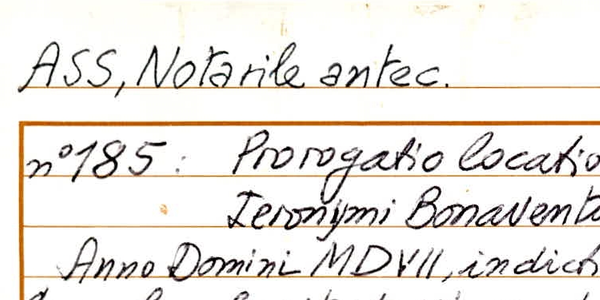 ASS, Notarile antec.
n° 185: Prorogatio locatio
Ieronymi Bonavent
Anno Domini MDVII, indict